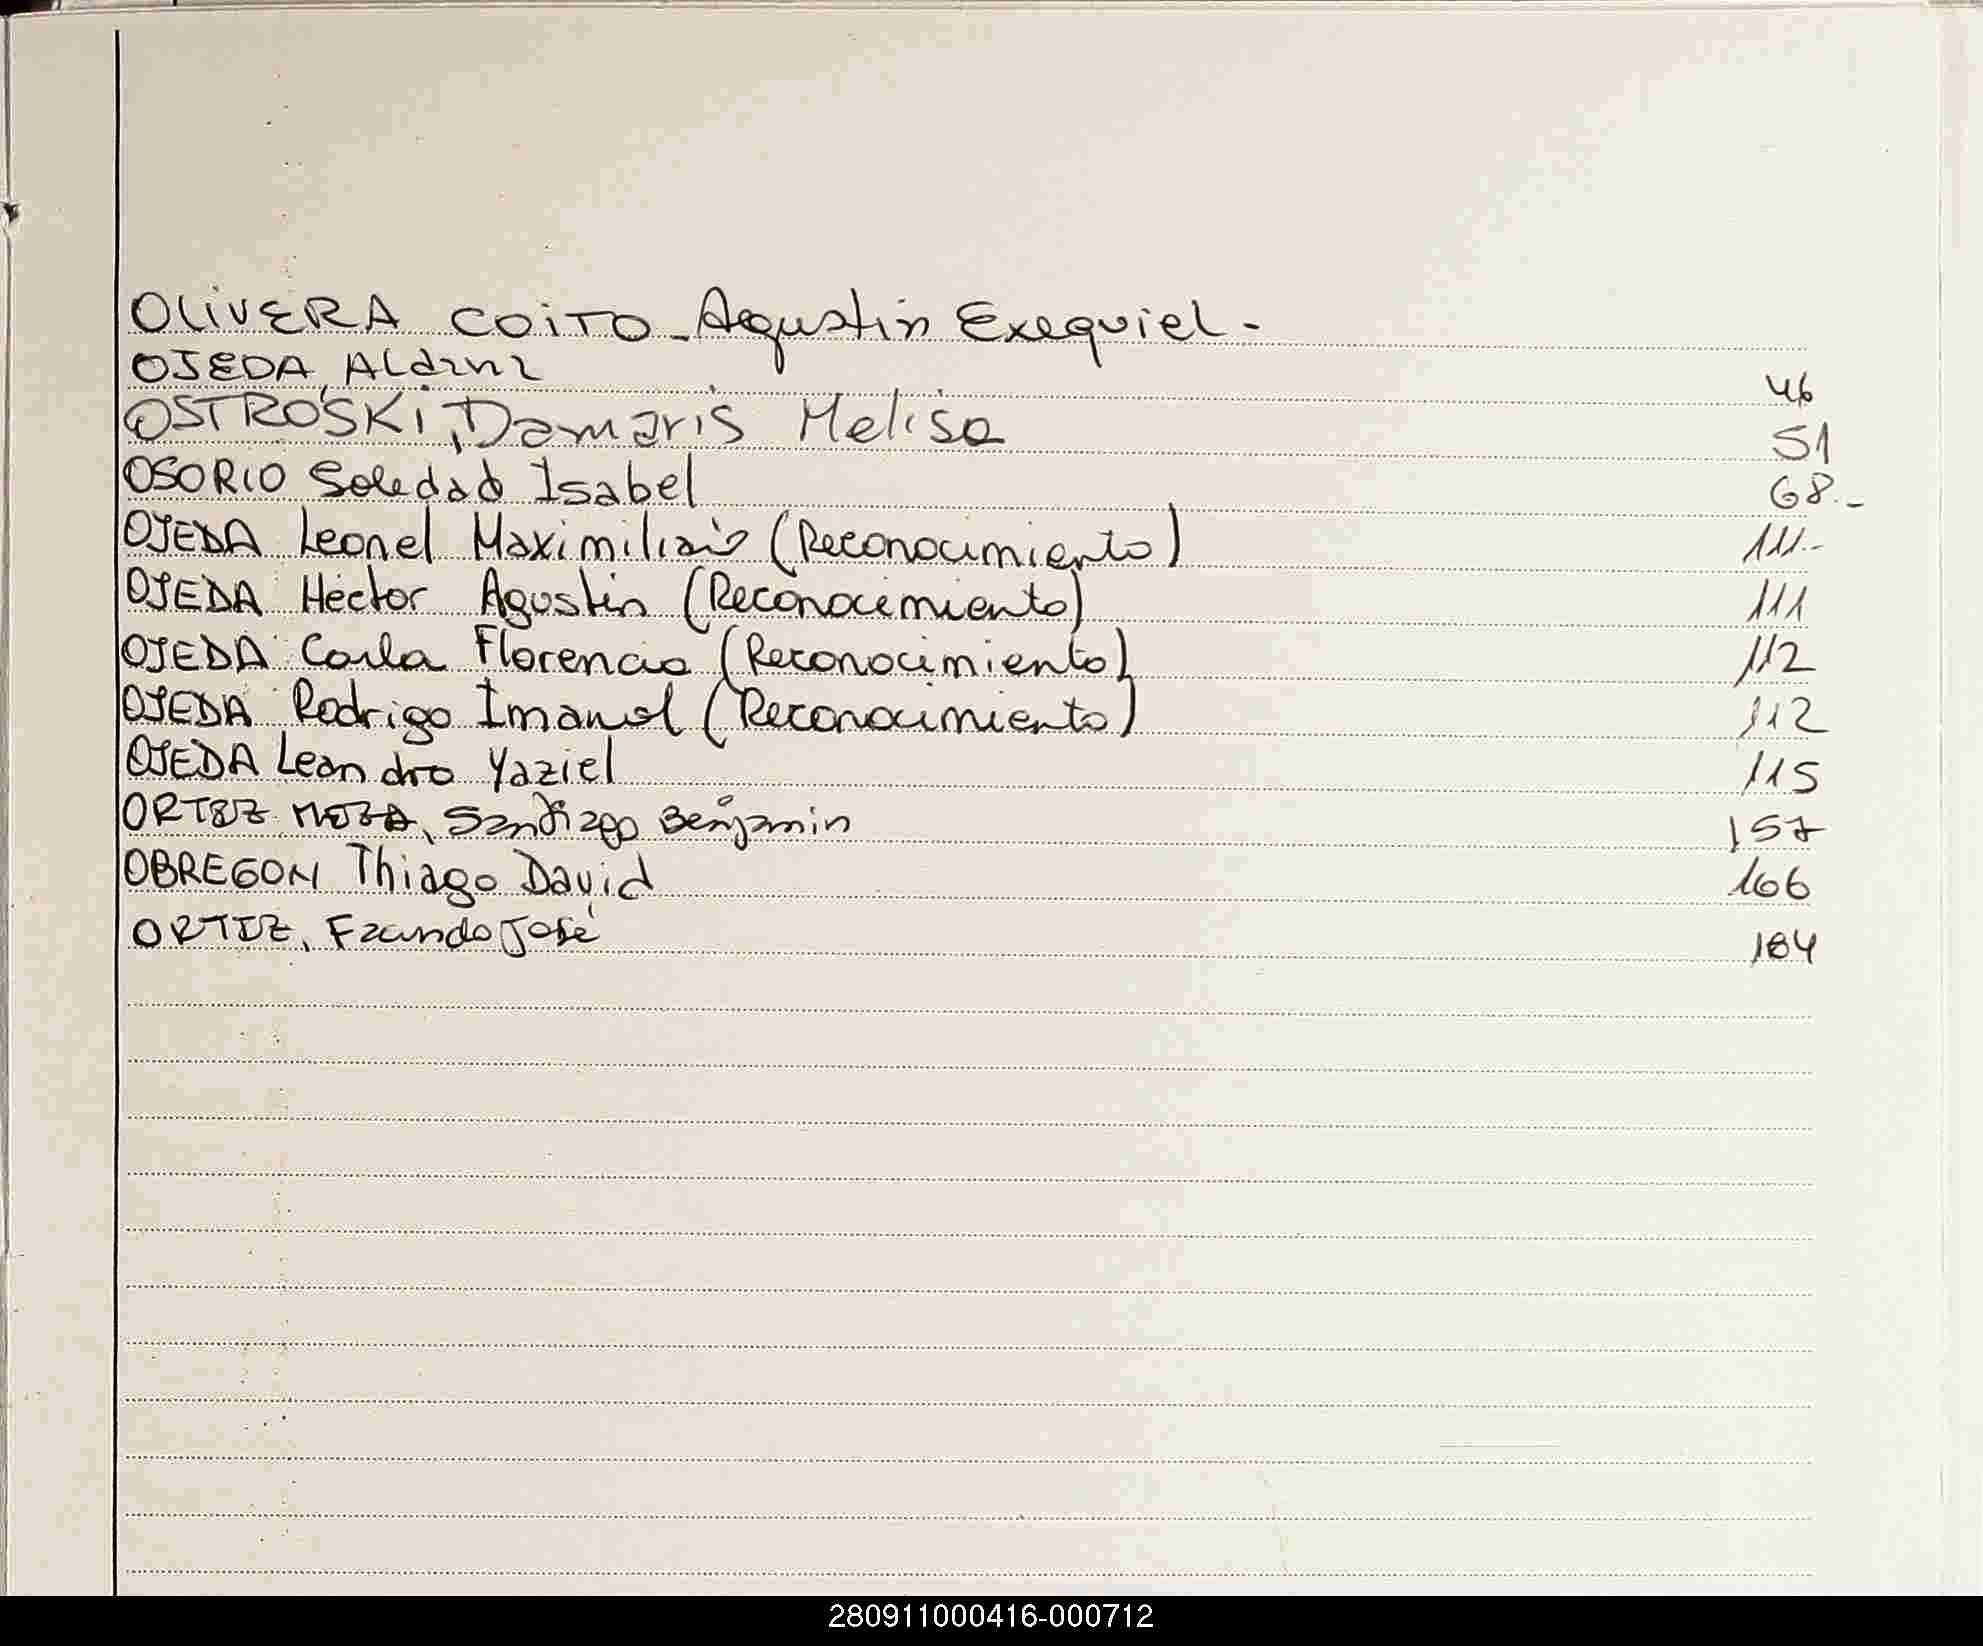 OLIVERA COITO - Agustin Exequiel -
OJEDA, Aldana 46
OSTROSKI, Damaris Melisa 51
OSORIO Soledad Isabel 68.-
OJEDA Leonel Maximiliano (Reconocimiento) 111.-
OJEDA Hector Agustin (Reconocimiento) 111
OJEDA Carla Florencia (Reconocimiento) 112
OJEDA Rodrigo Imanol (Reconocimiento) 112
OJEDA Leandro Yaziel 115
ORTIZ, Santiago Benjamin 157
OBREGON Thiago David 166
ORTIZ, Facundo José 184
280911000416-000712